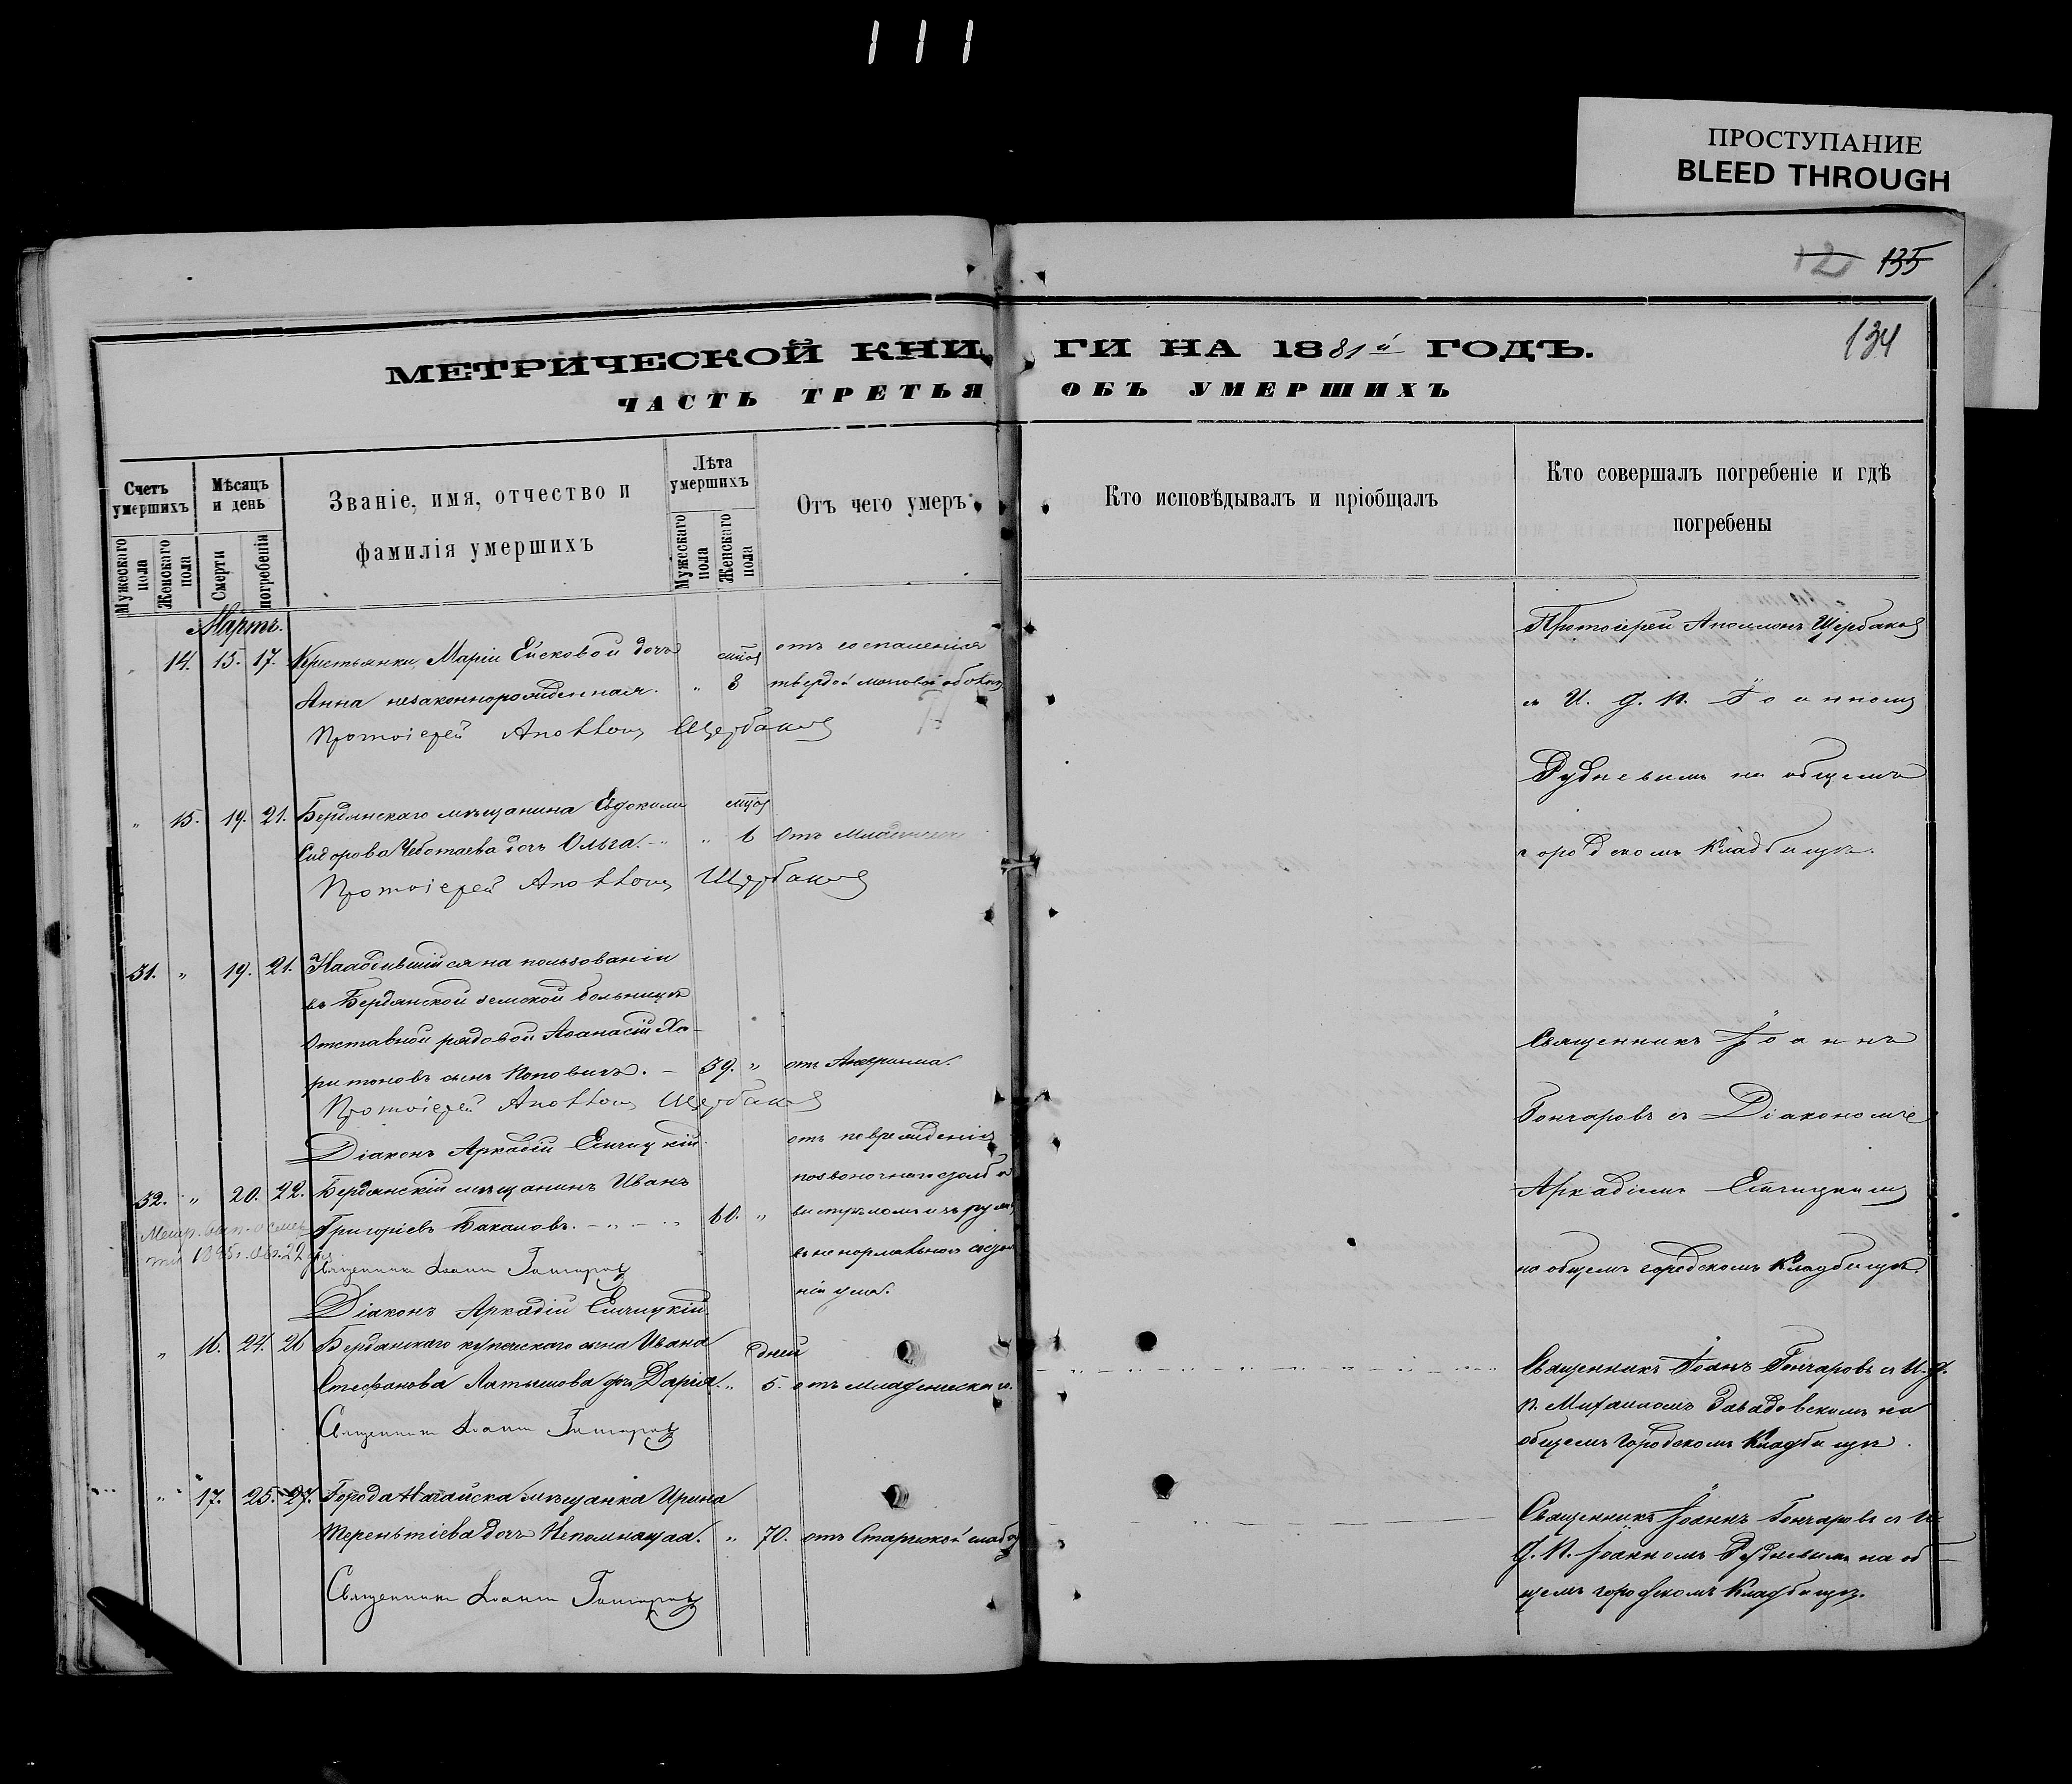 111
ПРОСТУПАНИЕ
BLEED THROUGH
12 135
134
МЕТРИЧЕСКОЙ КНИГИ НА 1881й ГОДЪ.
ЧАСТЬ ТРЕТЬЯ ОБЪ УМЕРШИХЪ
Счетъ умершихъ
Мужескаго пола
Женскаго пола
Мѣсяцъ и день
Смерти
погребенія
Званіе, имя, отчество и
фамилія умершихъ
Лѣта умершихъ
Мужескаго пола
Женскаго пола
Отъ чего умеръ
Кто исповѣдывалъ и пріобщалъ
Кто совершалъ погребеніе и гдѣ
погребены
Мартъ.
" 14. 15. 17. Крестьянки Маріи Ейсковой дочь
Анна незаконнорожденная. " 8
отъ воспаленія
твердой мозговой оболоч
Протоіерей Аполлонъ Щербаковъ
Протоіерей Аполлонъ Щербаковъ
съ И. д. п. Іоанномъ
Рудневымъ на общемъ
городскомъ Кладбищѣ.
" 15. 19. 21. Бердянскаго мѣщанина Евдокима
Сидорова Чеботаева дочь Ольга. " 6 Отъ
Протоіерей Аполлонъ Щербаковъ
31. " 19. 21. Находившійся на пользованіи
въ Бердянской земской больницѣ
Отставной рядовой Аѳанасій Ха-
ритоновъ сынъ Поповичъ. 39. " отъ Аневризма.
Протоіерей Аполлонъ Щербаковъ
Діаконъ Аркадій
Священникъ Іоаннъ
Гончаровъ съ Діакономъ
Аркадіемъ
на общемъ городскомъ Кладбищѣ.
32. " 20. 22. Бердянскій мѣщанинъ Иванъ
Григоріевъ Бакаловъ. 60. "
отъ поврежденія
позвоночнаго столба
выстрѣломъ изъ руж
въ ненормальном состоя
ніи ума.
Священникъ Іоаннъ Гончаровъ
Діаконъ Аркадій
" 16. 24. 26 Бердянскаго купеческаго сына Ивана
Стефанова Латышова дочь Дарія. " дней 5. отъ младенческаго.
Священникъ Іоаннъ Гончаровъ
Священникъ Іоанъ Гончаровъ съ И. д.
п. Михаиломъ Завадовскимъ на
общемъ городскомъ Кладбищѣ.
" 17. 25. 27. Города Ногайска мѣщанка Ирина
Терентіева дочь Непомнящая. " 70. отъ Старческой слабо
Священникъ Іоаннъ Гончаровъ
Священникъ Іоаннъ Гончаровъ съ И.
д. п. Іоанномъ Рудневымъ на об
щемъ городскомъ Кладбищѣ.